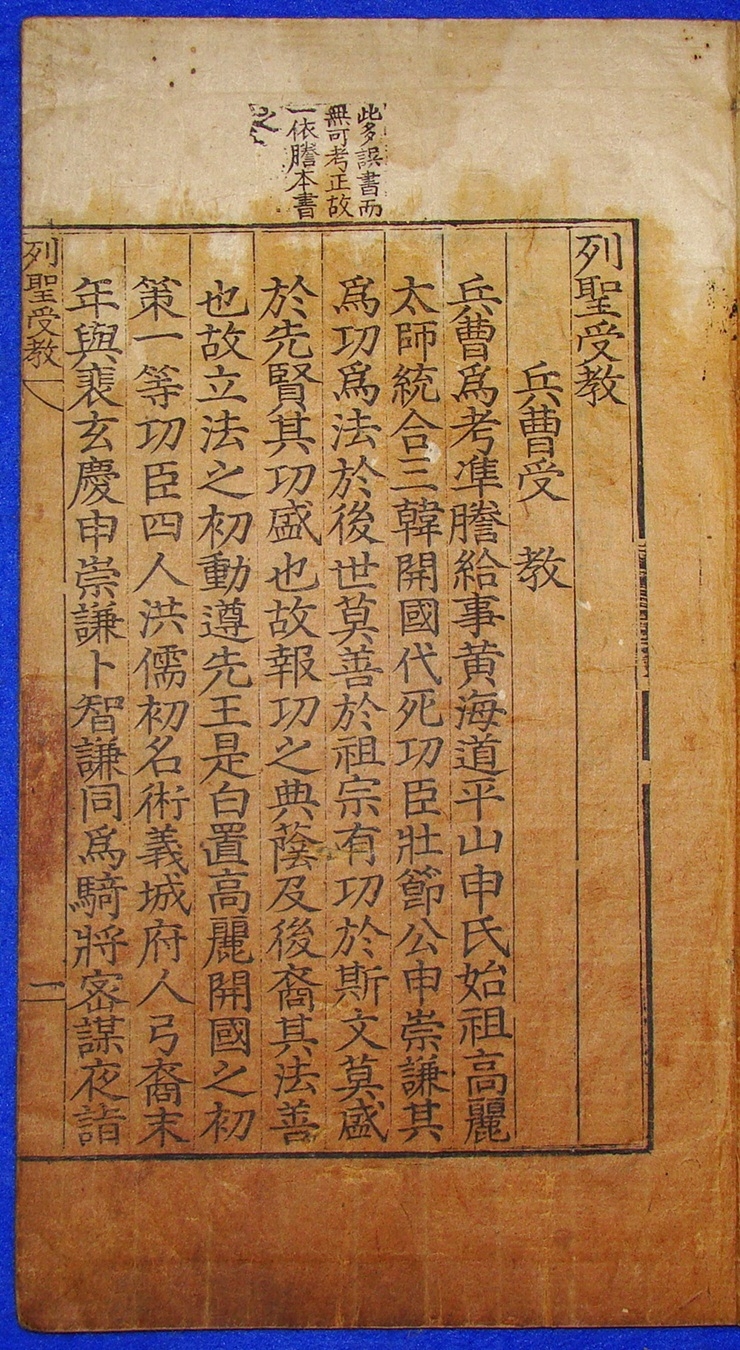 此多誤書而
無可考正故
一依謄本書
之
列聖受教
兵曹受　教
兵曹爲考準謄給事黃海道平山申氏始祖高麗
太師統合三韓開國代死功臣壯節公申崇謙其
爲功爲法於後世莫善於祖宗有功於斯文莫盛
於先賢其功盛也故報功之典蔭及後裔其法善
也故立法之初動遵先王是白置高麗開國之初
策一等功臣四人洪儒初名術義城府人弓裔末
年與裴玄慶申崇謙卜智謙同爲騎將密謀夜詣
列聖受教　一